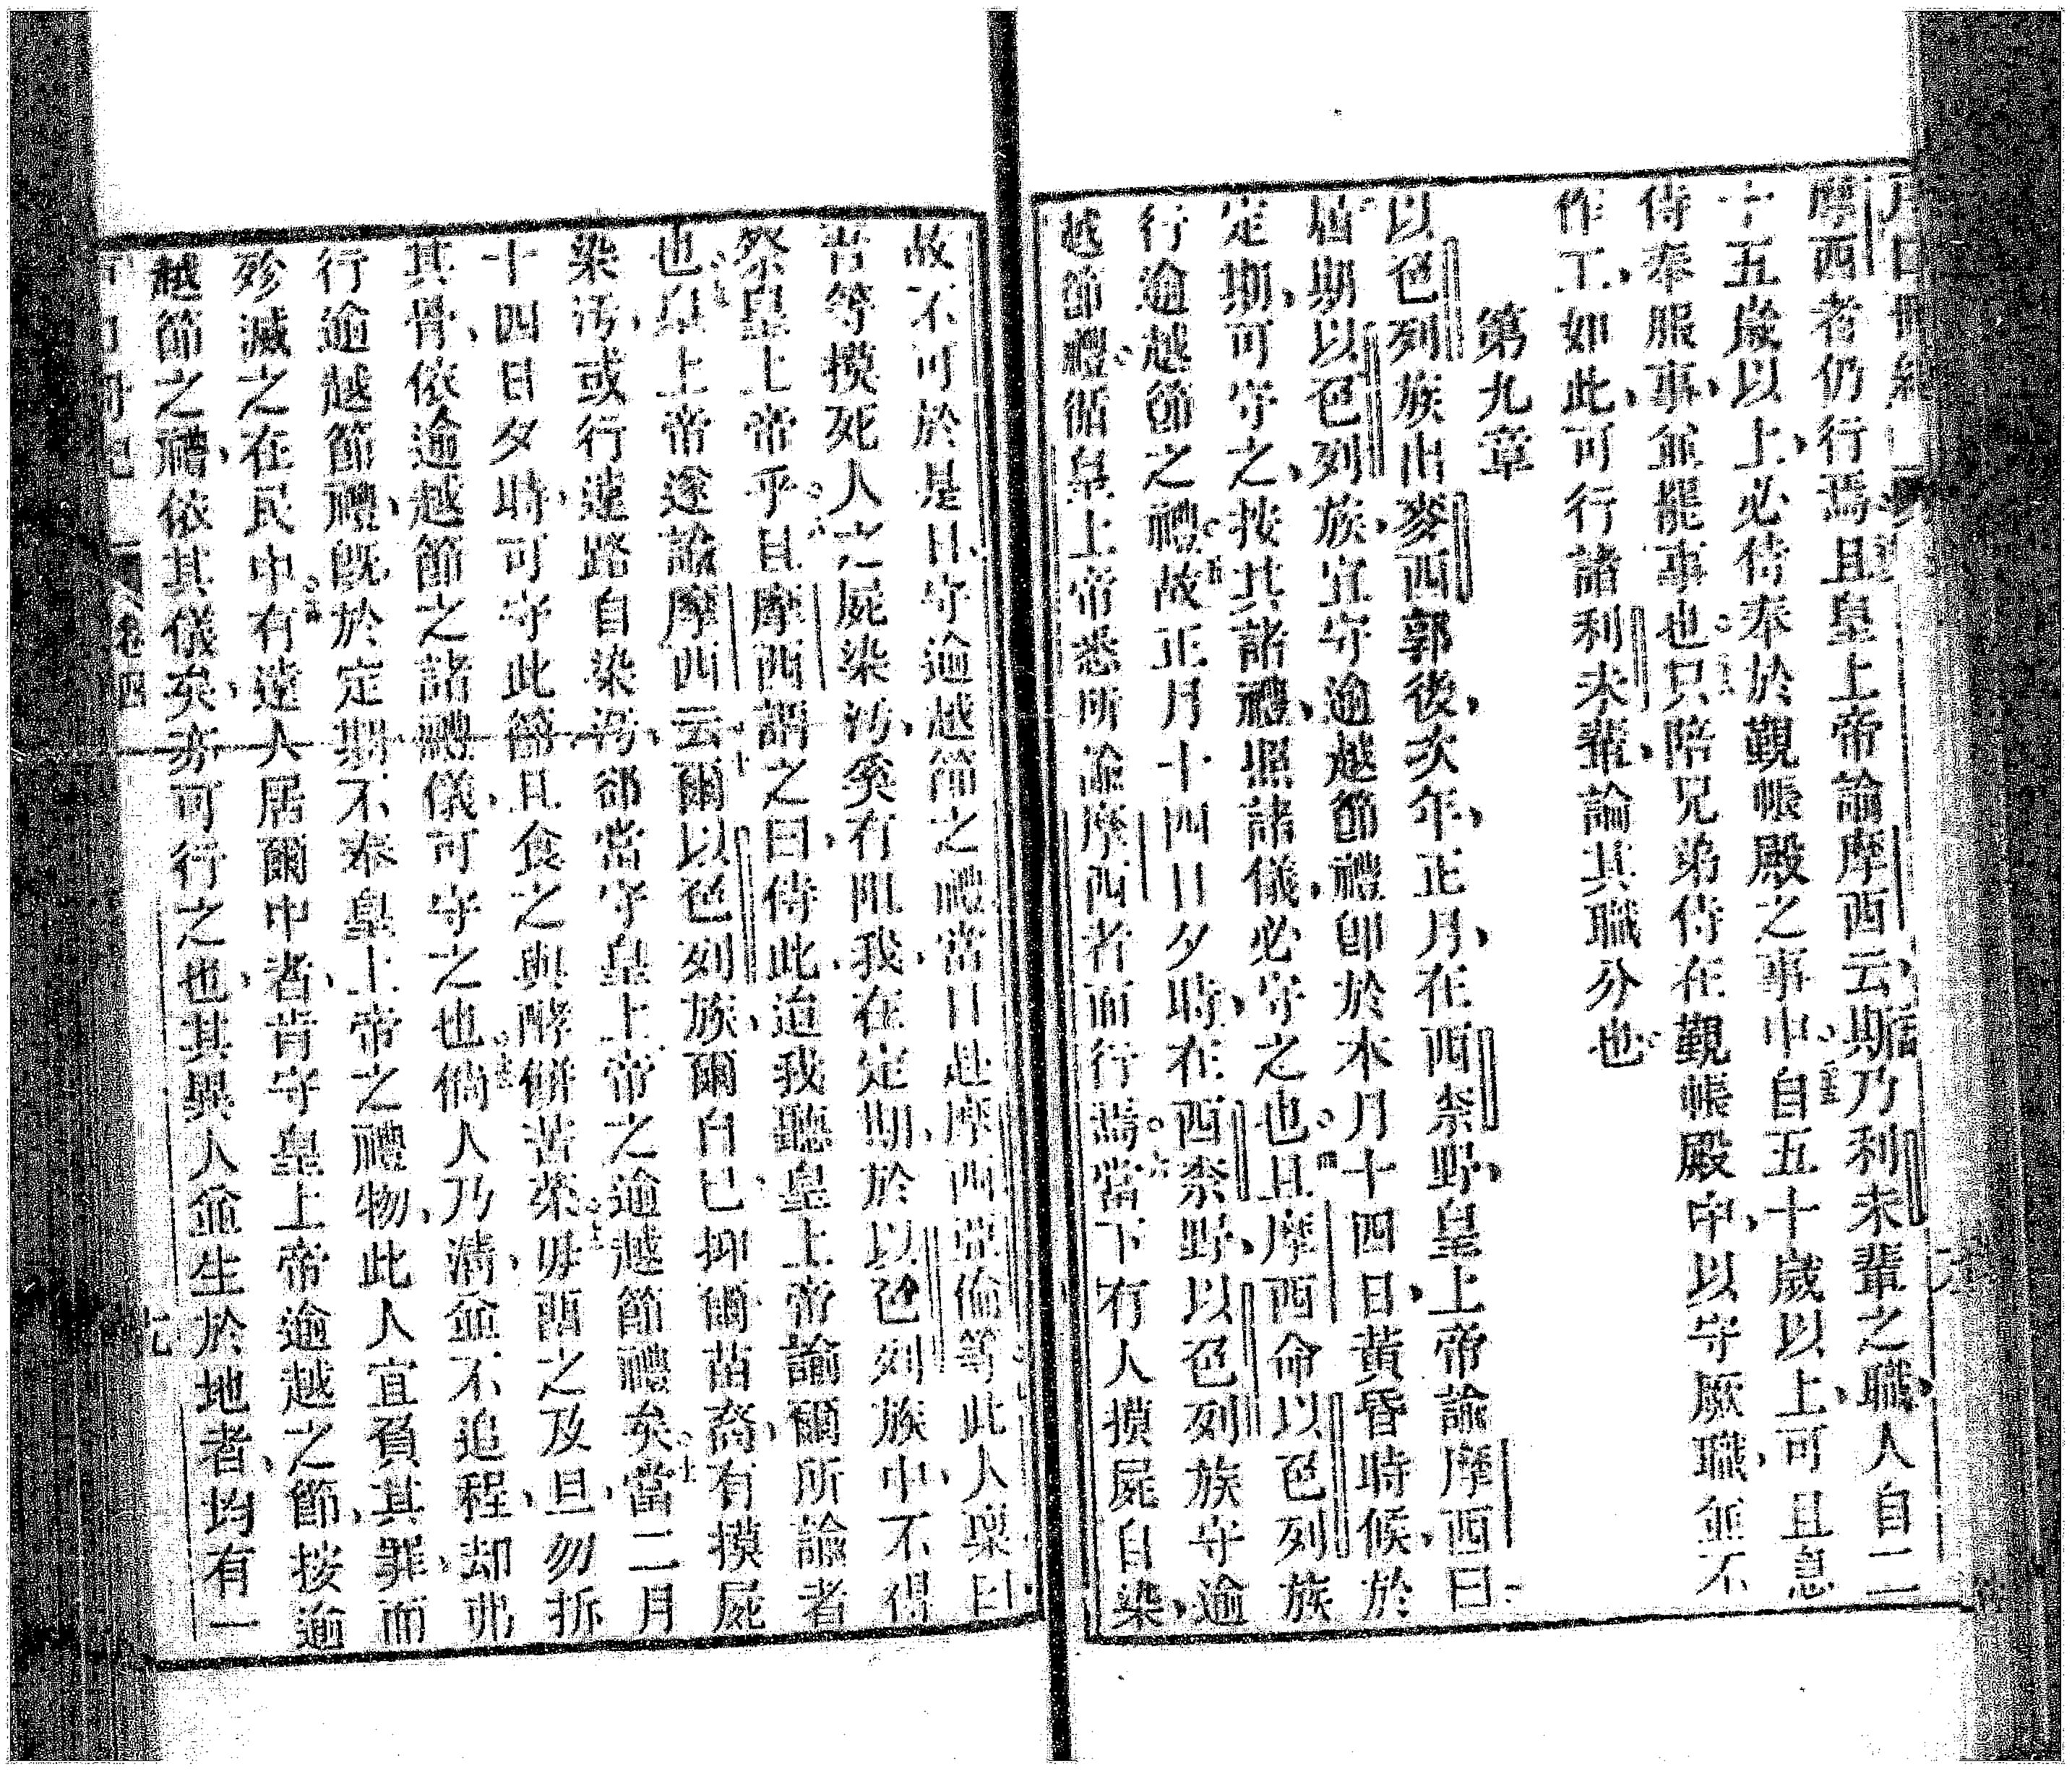 摩西者仍行焉且皇上帝諭摩西云斯乃利未輩之職人自二
十五歲以上必侍奉於覲帳殿之事中自五十歲以上可且息
侍奉服事並罷事也只陪兄弟侍在覲帳殿中以守厥職並不
作工如此可行諸利未輩論其職分也
第九章
以色列族出麥西郭後次年正月在西柰野皇上帝諭摩西曰
屆期以色列族宜守逾越節禮卽於本月十四日黃昏時候於
定期可守之按其諸禮照諸儀必守之也且摩西命以色列族
行逾越節之禮故正月十四日夕時在西柰野以色列族守逾
越節禮循皇上帝悉所諭摩西者而行焉當下有人摸屍自染
故不可於是日守逾越節之禮當日赴摩西亞倫等此人稟曰
吾等摸死人之屍染汚奚有阻我在定期於以色列族中不得
祭皇上帝乎且摩西謂之曰侍此迨我聽皇上帝諭爾所諭者
也皇上帝遂諭摩西云爾以色列族爾自己抑爾苗裔有摸屍
染汚或行遠路自染汚卻當守皇上帝之逾越節禮矣當二月
十四日夕時可守此節且食之與酵餅苦菜毋酉之及旦勿拆
其骨依逾越節之諸禮儀可守之也倘人乃淸並不追程却弗
行逾越節禮旣於定期不奉皇上帝之禮物此人宜負其罪而
殄滅之在民中有遠人居爾中者肯守皇上帝逾越之節按逾
越節之禮依其儀矣亦可行之也其異人並生於地者均有一
卷四